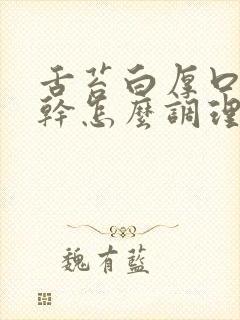 舌苔白厚口
幹怎麼調理
魏有藍